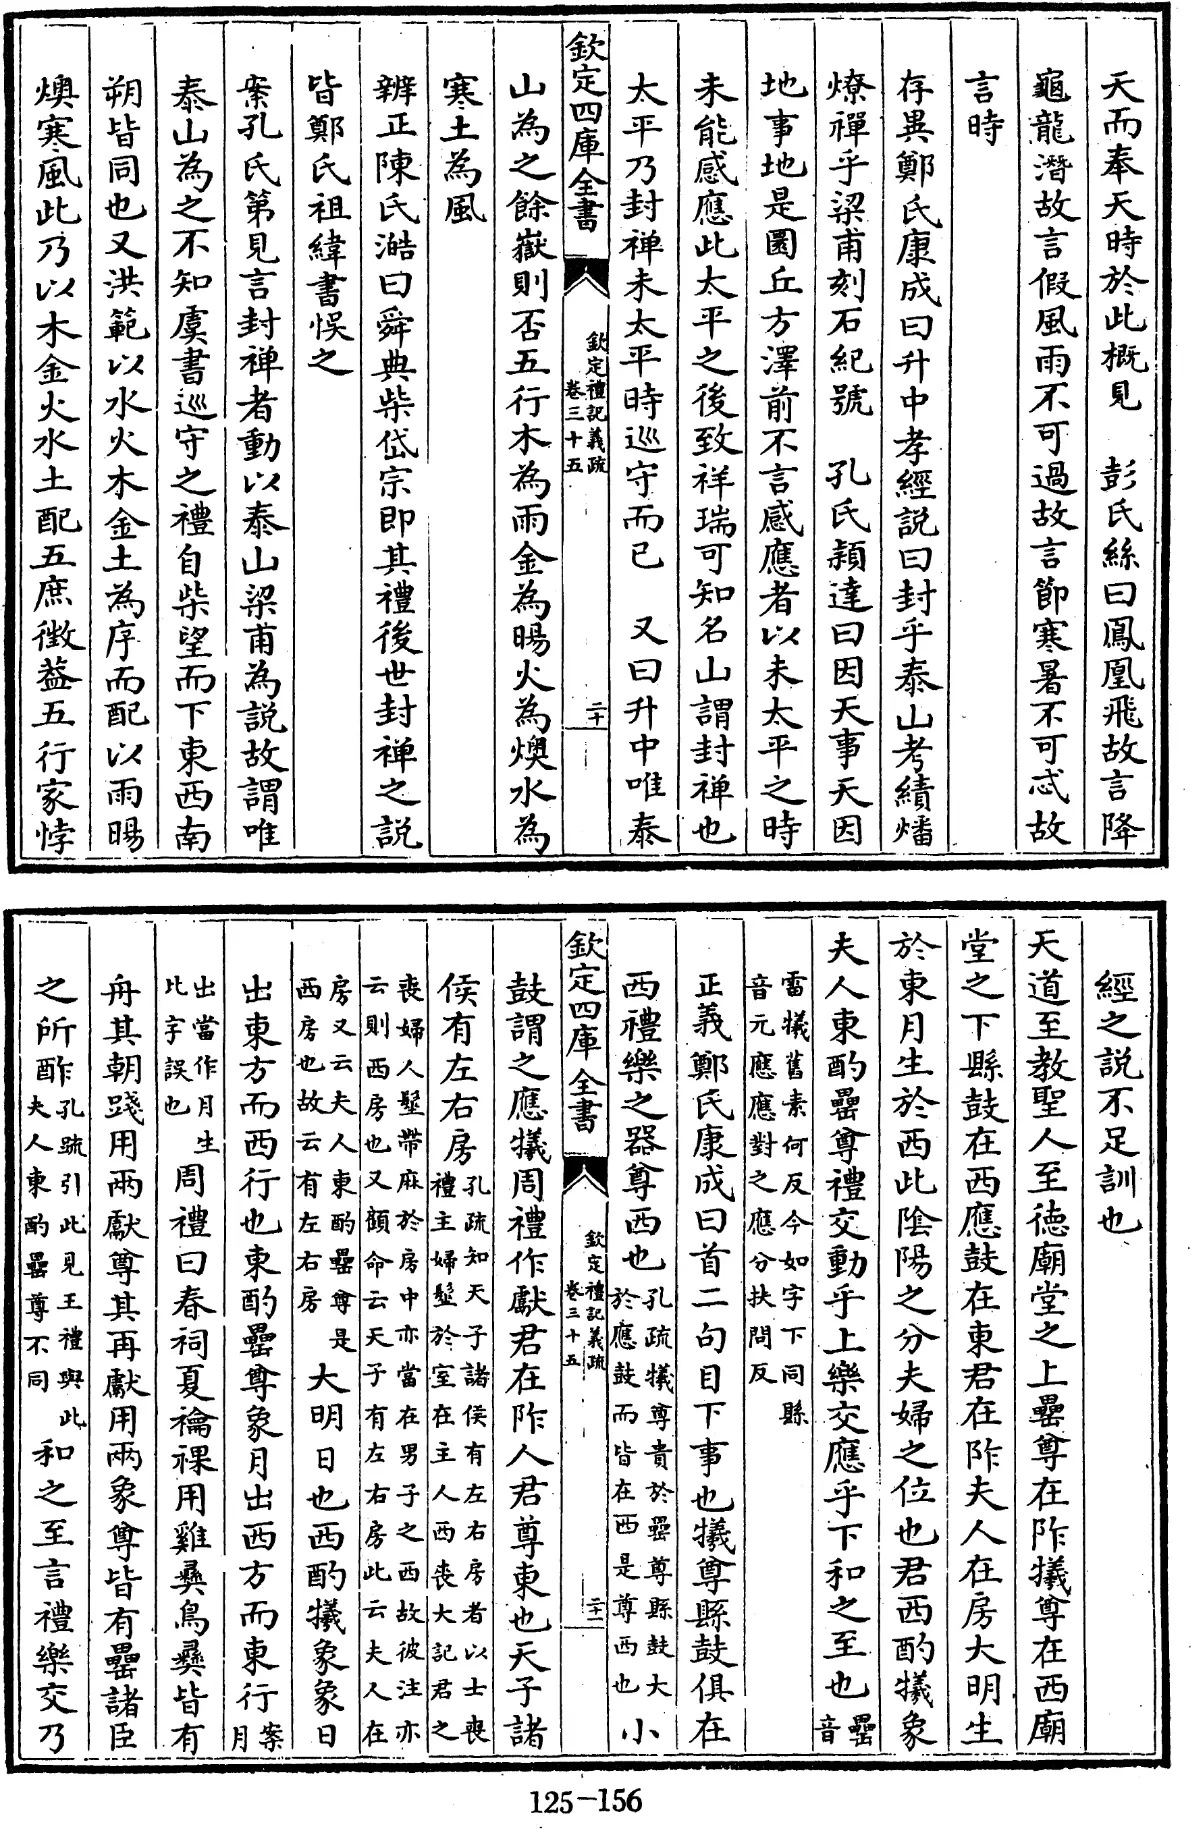 天而奉天時於此概見　彭氏絲曰鳳凰飛故言降
龜龍潛故言假風雨不可過故言節寒暑不可忒故
言時
存異鄭氏康成曰升中孝經説曰封乎泰山考績燔
燎禪乎梁甫刻石紀號　孔氏穎達曰因天事天因
地事地是圜丘方澤前不言感應者以未太平之時
未能感應此太平之後致祥瑞可知名山謂封禪也
太平乃封禪未太平時巡守而已　又曰升中唯泰
欽定四庫全書
欽定禮記義疏
卷三十五
二十
山為之餘嶽則否五行木為雨金為暘火為燠水為
寒土為風
辨正陳氏澔曰舜典柴岱宗即其禮後世封禪之説
皆鄭氏祖緯書悞之
案孔氏第見言封禪者動以泰山梁甫為説故謂唯
泰山為之不知虞書巡守之禮自柴望而下東西南
朔皆同也又洪範以水火木金土為序而配以雨暘
燠寒風此乃以木金火水土配五庶徴益五行家悖
經之説不足訓也
天道至教聖人至徳廟堂之上罍尊在阼犧尊在西廟
堂之下縣鼓在西應鼓在東君在阼夫人在房大明生
於東月生於西此陰陽之分夫婦之位也君西酌犧象
夫人東酌罍尊禮交動乎上樂交應乎下和之至也罍音
雷犧舊素何反今如字下同縣
音元應應對之應分扶問反
正義鄭氏康成曰首二句目下事也犧尊縣鼓俱在
西禮樂之器尊西也孔疏犧尊貴於罍尊縣鼓大於應鼓而皆在西是尊西也小
欽定四庫全書
欽定禮記義疏
卷三十五
二十一
鼓謂之應犧周禮作獻君在阼人君尊東也天子諸
侯有左右房孔疏知天子諸侯有左右房者以士喪禮主婦髽於室在主人西喪大記君之
喪婦人髽帶麻於房中亦當在男子之西故彼注亦
云則西房也又顧命云天子有左右房此云夫人在
房又云夫人東酌罍尊是西房也故云有左右房大明日也西酌犧象象日
出東方而西行也東酌罍尊象月出西方而東行案月
出當作月生此字誤也周禮曰春祠夏禴祼用雞彝鳥彝皆有
舟其朝踐用兩獻尊其再獻用兩象尊皆有罍諸臣
之所酢孔疏引此見王禮與此夫人東酌罍尊不同和之至言禮樂交乃
125-156